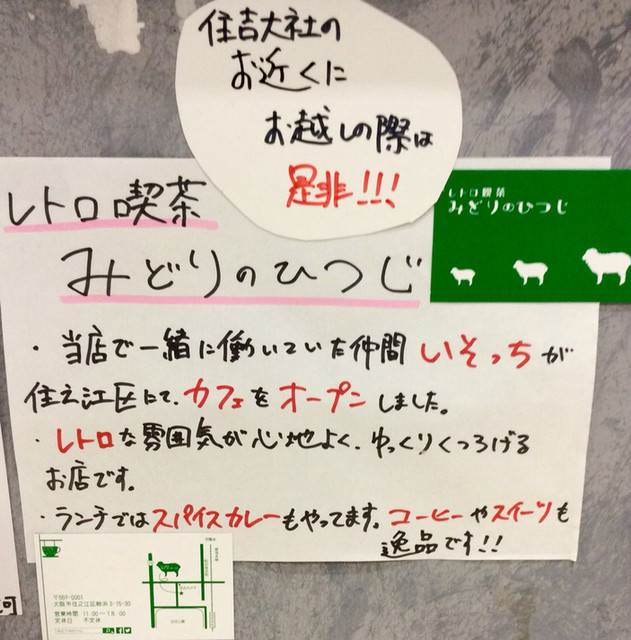 住吉大社の
お近くに
お越しの際は
是非!!!
レトロ喫茶
みどりのひつじ
レトロ喫茶
みどりのひつじ
・当店で一緒に働いていた仲間 いそっちが
住之江区にて、カフェをオープンしました。
・レトロな雰囲気が心地よく、ゆっくりくつろげる
お店です。
・ランチではスパイスカレーもやってます。コーヒーやスイーツも
逸品です!!
〒559-0001
大阪市住之江区粉浜3-15-30
営業時間 11:00〜18:00
定休日 不定休
河